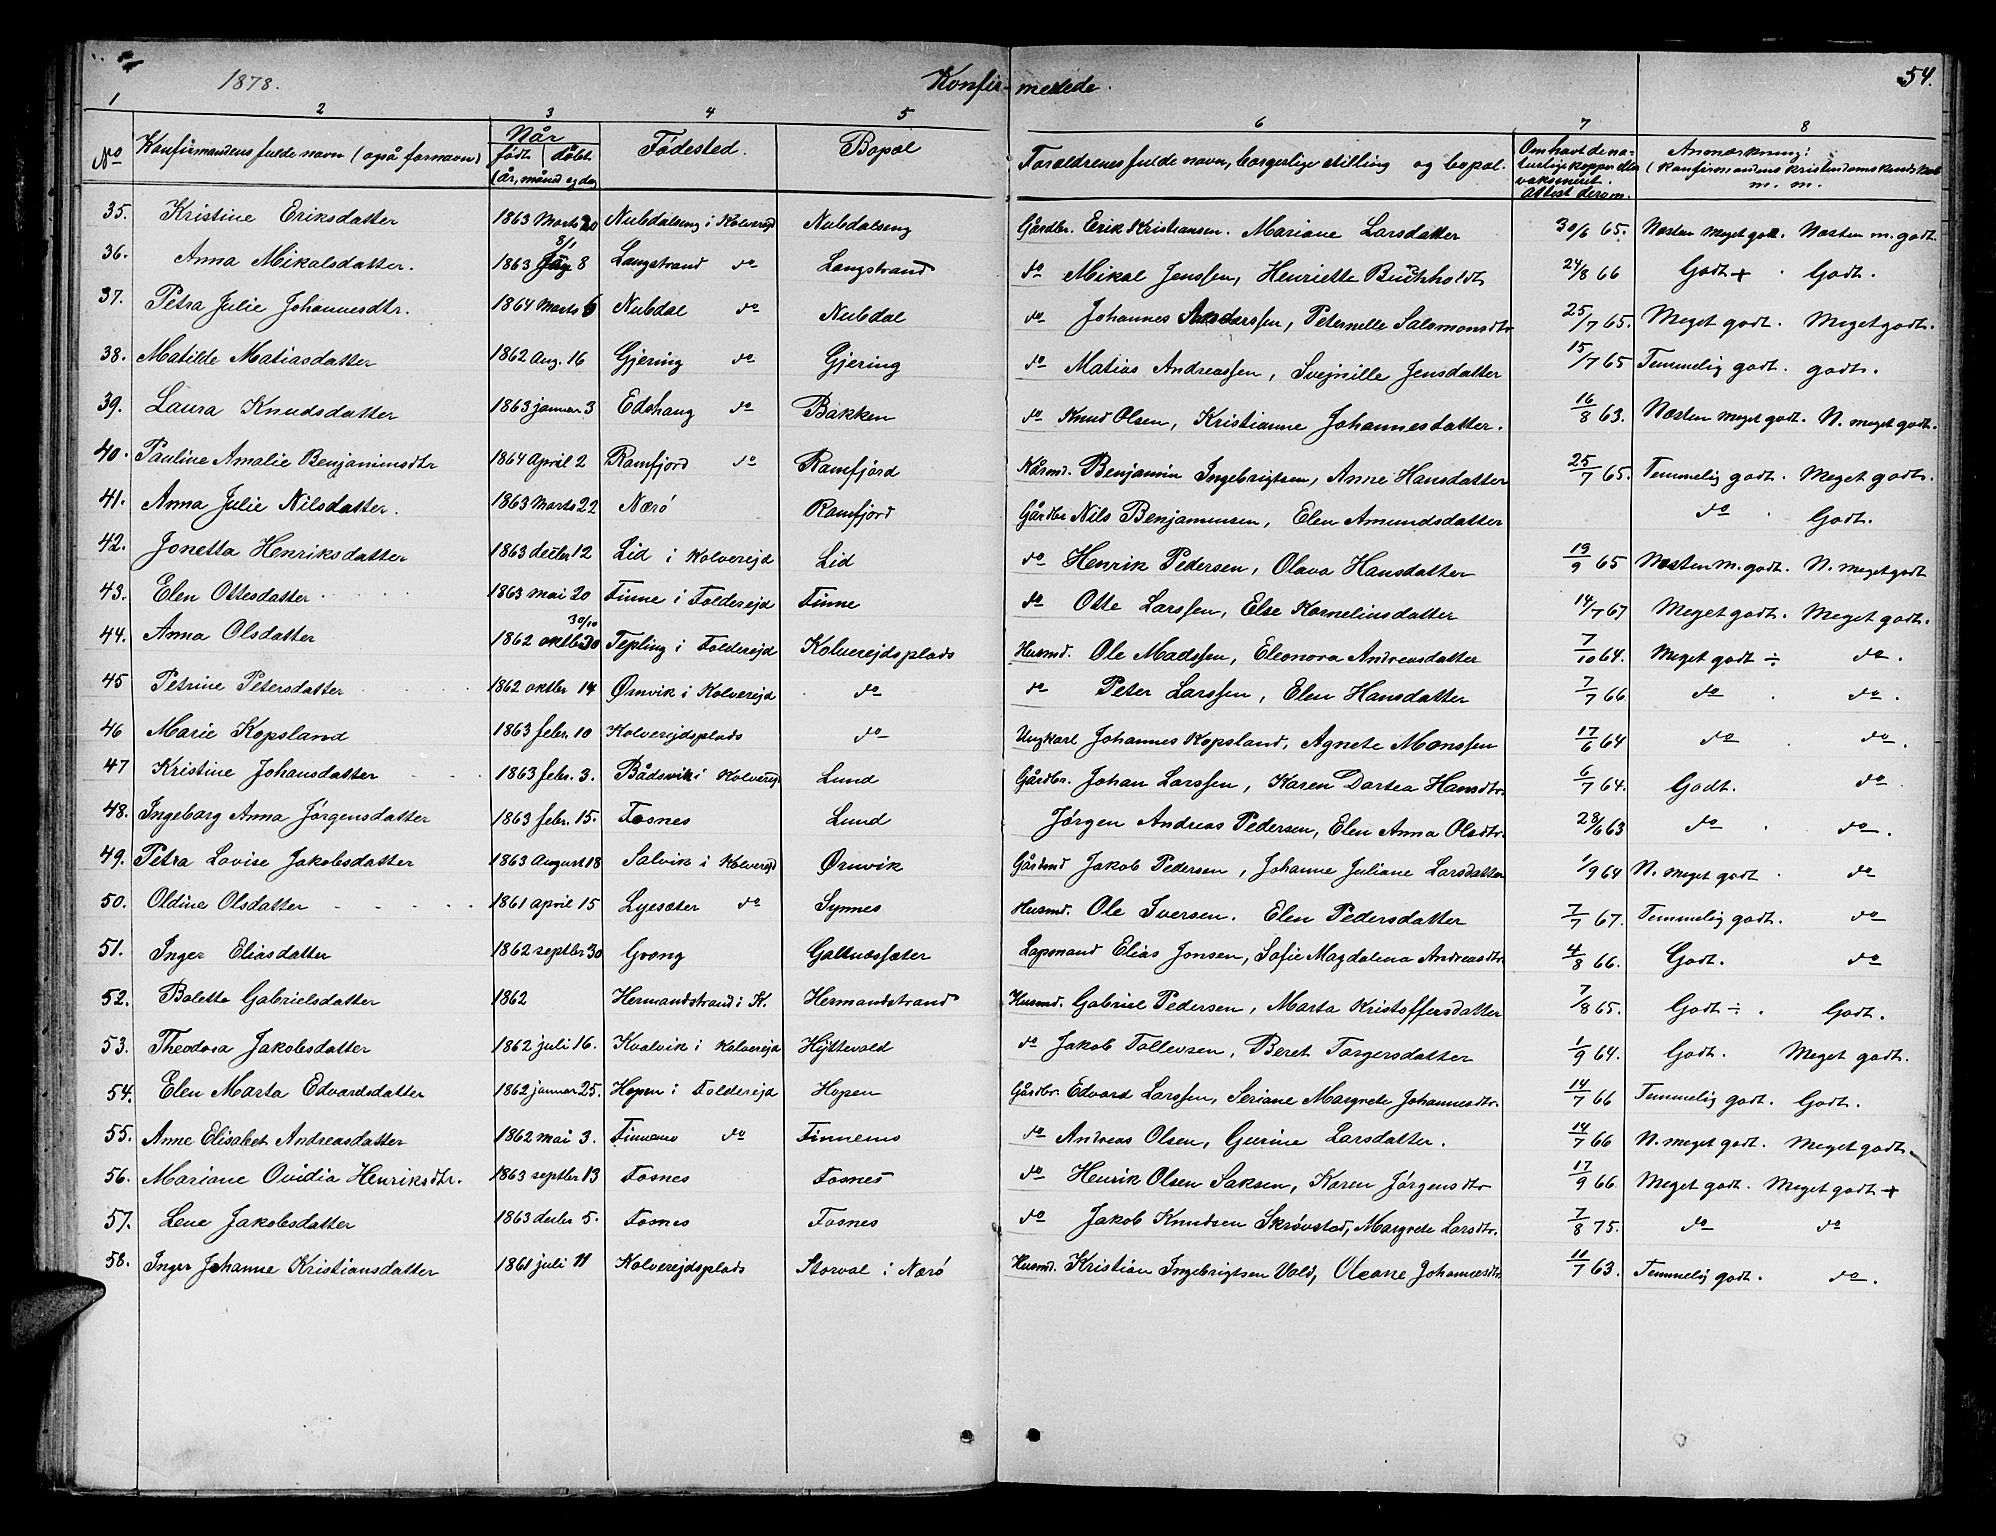 1878. Konfirmerede. 54.
1 2 3 4 5 6 7 8
No Konfirmandens fulde navn (også fornavn) Når Fødested. Bopæl Foræladrenes fulde navn, borgerlige stilling og bopæl. Om havt de na- Anmærkning:
født | døbt turlige kopper eller (konfirmandens kristendomskundskab
(år, måned og dag vaksineret. m. m.
Attest derom.
35. Kristine Eriksdatter 1863 Marts 20 Nubdalseng i Kolverejd Nubdalseng Gårdbr. Erik Kristiansen. Mariane Larsdatter 30/6 65. Næsten meget godt. Næsten m. godt.
36. Anna Mikalsdatter. 1863 8/1 8 Langstrand do Langstrand do Mikal Jenssen, Henriette Buchholdt 24/8 66 Godt + . Godt.
37. Petra Julie Johannesdtr. 1864 Marts 6 Nubdal do Nubdal do Johannes Anderssen, Peternelle Salomonsdtr 25/7 65. Meget godt. Meget godt.
38. Matilde Matiasdatter 1862 Aug. 16 Gjering do Gjering do Matias Andreassen, Svejnille Jensdatter 15/7 65 Temmelig godt. godt.
39. Laura Knudsdatter 1863 januar 3 Edshaug do Bakken do Knud Olsen, Kristianne Johannesdatter. 16/8 63. Næsten meget godt. N. meget godt.
40. Pauline Amalie Benjaminsdtr 1864 April 2 Ramfjord do Ramfjord Nårmd. Benjamin Ingebrigtsen, Anne Hansdatter 25/7 65. Temmelig godt. Meget godt.
41. Anna Julie Nilsdatter. 1863 Marts 22 Nærø Ramfjord Gårdbr Nils Benjaminsen, Elen Amundsdatter do . Godt.
42. Jonetta Henriksdatter 1863 decbr 12 Lid i Kolverejd Lid do Henrik Pedersen, Olava Hansdatter 19/9 65 Næsten m. godt. N. meget godt
43. Elen Ottesdatter 1863 mai 20 Finne i Folderejd Finne do Otte Larssen, Else Kornelinsdatter 14/7 67 Meget godt. Meget godt.
44. Anna Olsdatter 1862 oktbr 30 30/10 Tepling i Folderejd Kolverejdsplads Husmd. Ole Madssen, Eleonora Andreasdatter 7/10 64. Meget godt ÷ do.
45 Petrine Petersdatter 1862 oktbr 14 Ørnvik i Kolverejd do do Peter Larssen, Elen Hansdatter 7/7 66 do . do.
46 Marie Kopsland 1863 febr. 10 Kolverejdsplads do Ungkarl Johannes Kopsland, Agnete Monssen 17/6 64 do . do.
47 Kristine Johansdatter 1863 febr. 3. Bådsvik i Kolverejd Lund Gårdbr. Johan Larssen, Karen Dortea Hansdtr. 6/7 64. Godt. do
48. Ingeborg Anna Jørgensdatter 1863 febr. 15. Fosnes Lund Jørgen Andreas Pedersen, Elen Anna Olsdtr. 28/6 63 do . do.
49. Petra Lovise Jakobsdatter 1863 August 18 Salvik i Kolverejd Ørnvik Gårdmd Jakob Pedersen, Johanne Juliane Larsdatter 1/9 64 N. meget godt . do
50. Oldine Olsdatter - - - - 1861 april 15 Lyesæter do Synnes Husmd. Ole Iversen. Elen Pedersdatter 7/7 67. Temmelig godt. do
51. Inger Eliasdatter 1862 septbr 30 Grong Galtnæssæter Lapmand Elias Jonsen, Sofie Magdalena Andreasdtr 4/8 66. Godt. do
52. Bolette Gabrielsdatter 1862 Hermandstrand i K. Hermandstrand Husmd. Gabriel Pedersen, Marta Kristoffersdatter 7/8 65. Godt ÷ . Godt.
53. Theodora Jakobsdatter 1862 juli 16. Kvalvik i Kolverejd Hyttevold do Jakob Tollevsen, Beret Torgersdatter 1/9 64. Godt. Meget godt.
54. Elen Marta Edvardsdatter 1862 januar 25. Hopen i Folderejd Hopen Gårdbr. Edvard Larssen, Seriane Margrete Johannesdtr. 14/7 66 Temmelig godt. Godt.
55. Anne Elisabet Andreasdatter 1862 mai 3. Finnæs do Finnemo do Andreas Olsen, Gurine Larsdatter. 14/7 66 N. meget godt. Meget godt.
56. Mariane Ovidia Henriksdtr. 1863 septbr 13 Fosnes Fosnes do Henrik Olsen Saksen, Karen Jørgensdtr 17/9 66. Meget godt. Meget godt +
57. Lene Jakobsdatter 1863 decbr 5. Fosnes Fosnes do Jakob Knudsen Skrøvstad, Margrete Larsdtr. 7/8 75. do do
58. Inger Johanne Kristiansdatter 1861 juli 11 Kolverejdsplads Storval i Nærø Husmd. Kristian Ingebrigtsen Vold, Oleane Johannesdtr. 11/7 63. Temmelig godt. do.